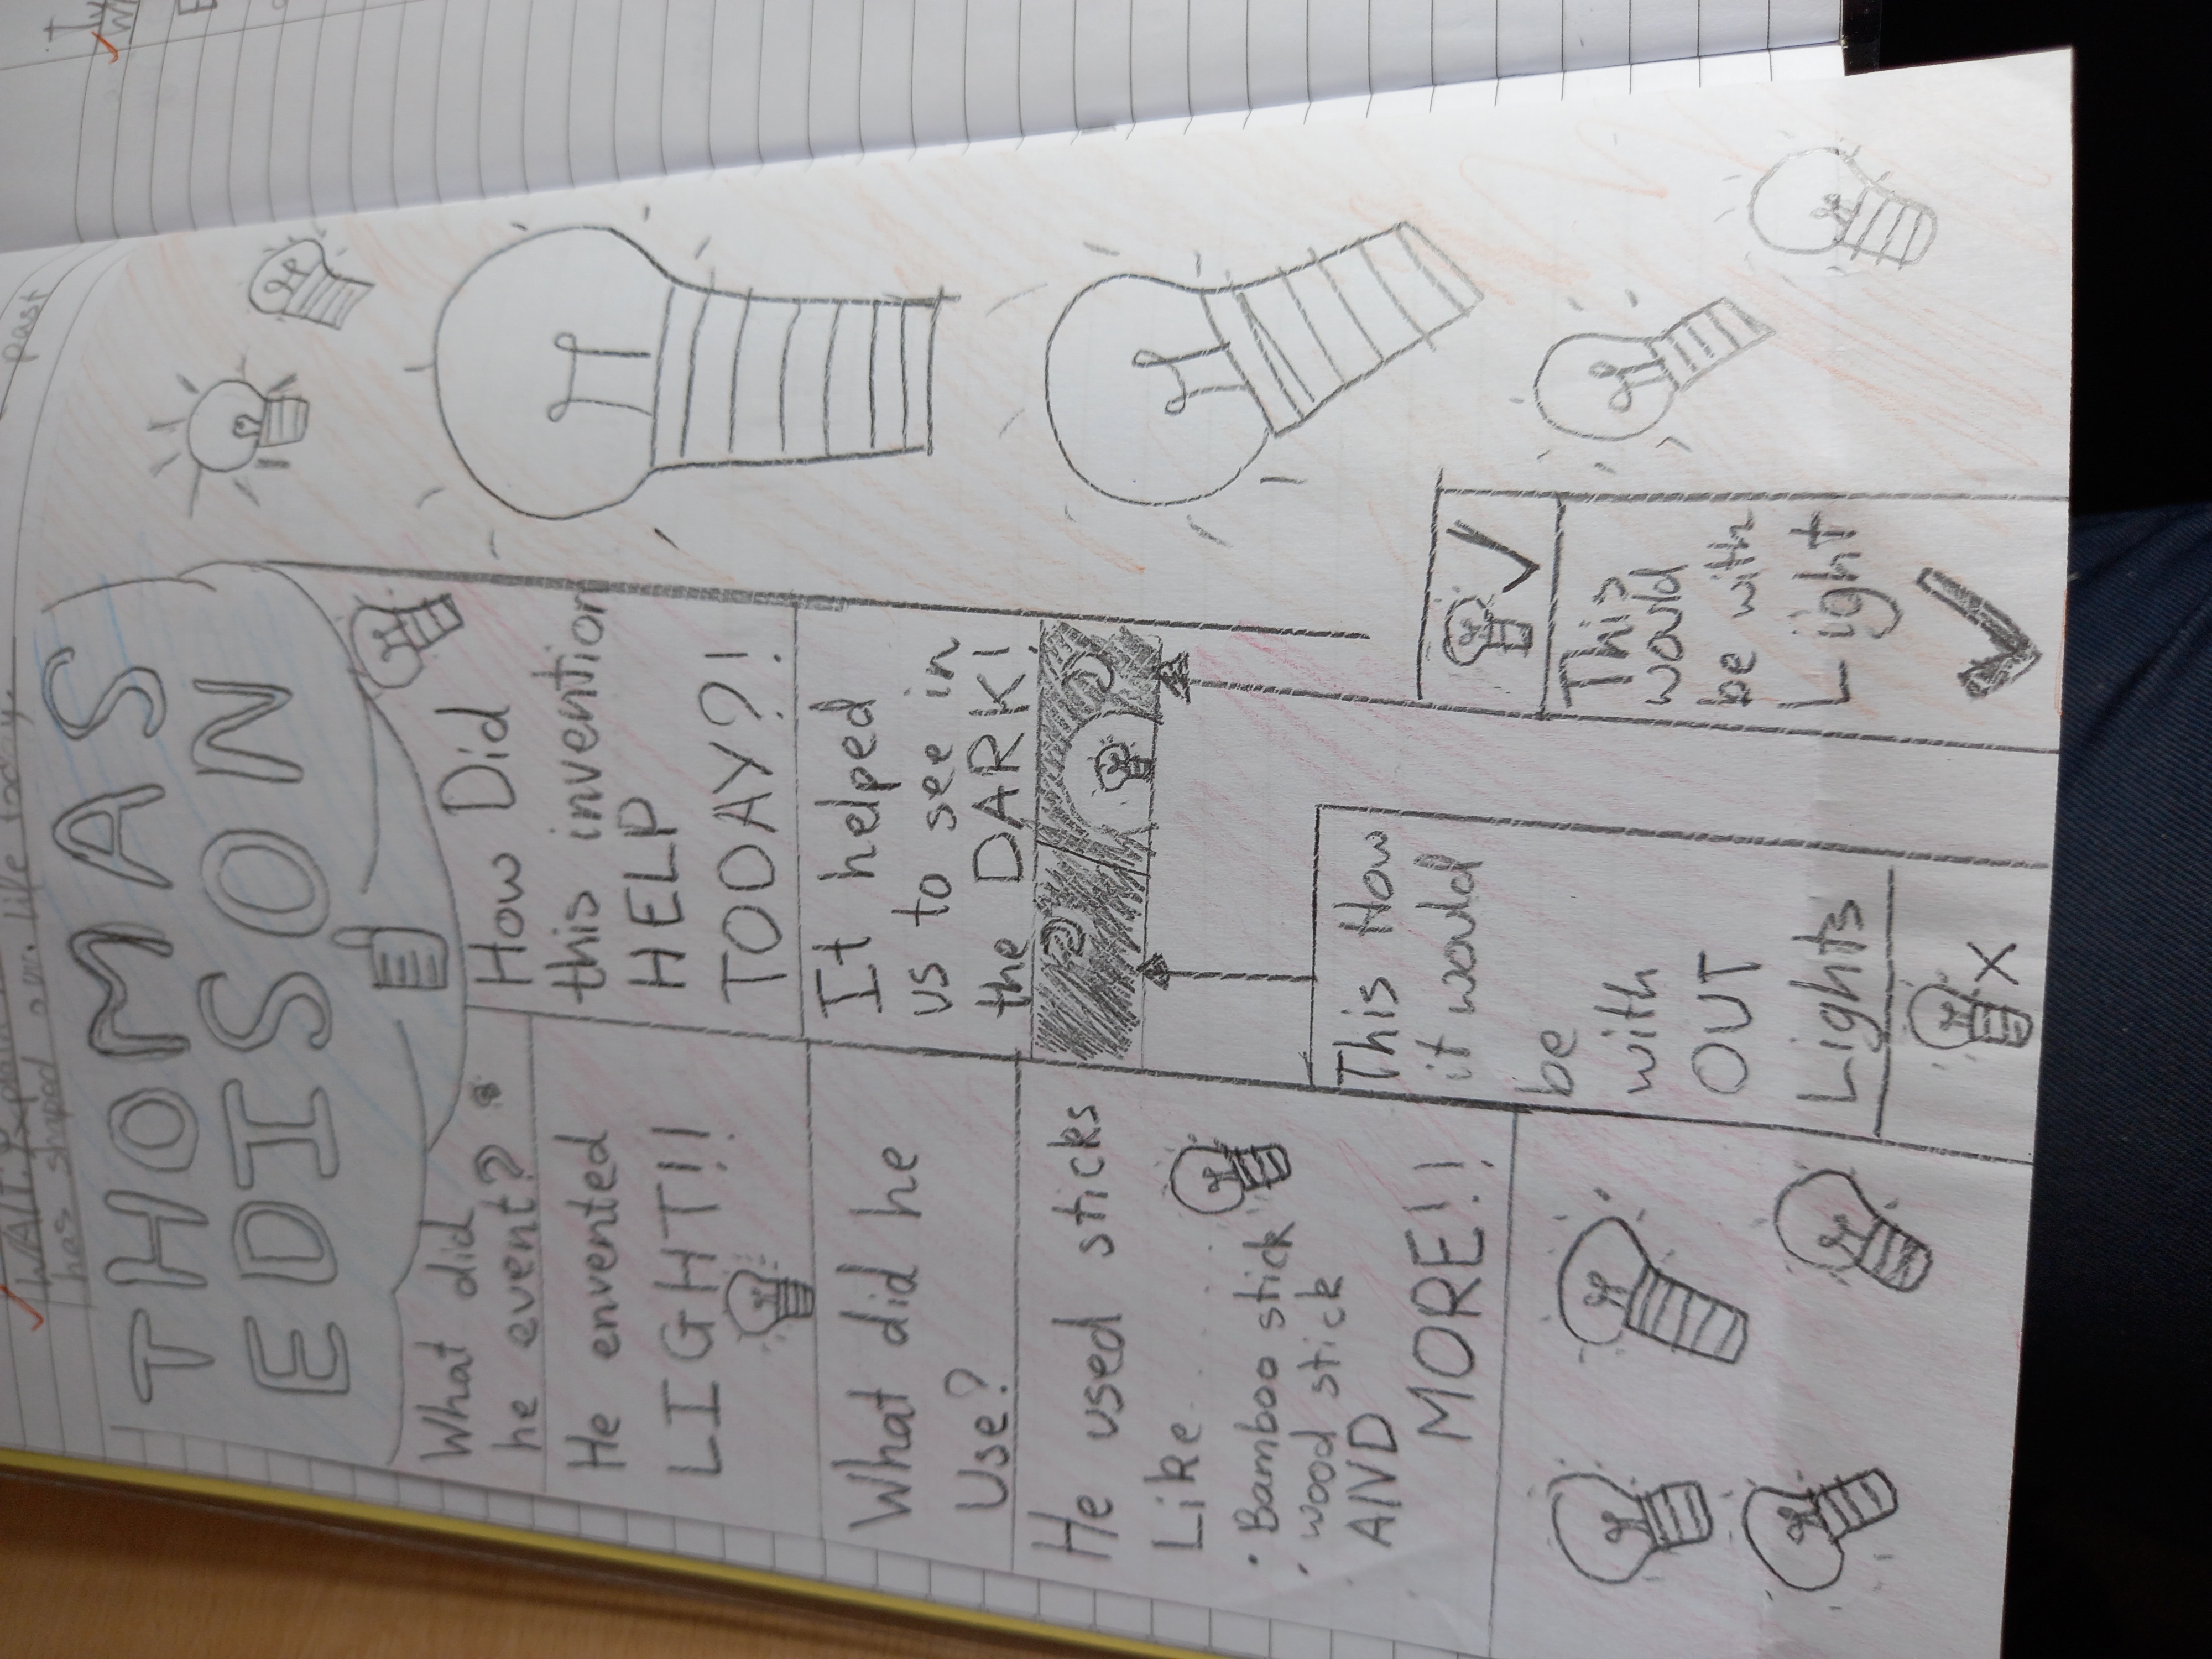 past
has shaped our life today.
THOMAS
EDISON
What did
he event?
He envented
LIGHT!!
What did he
Use?
He used sticks
Like...
• Bamboo stick
• wood stick
AND
MORE!!
How Did
this invention
HELP
TODAY?!
It helped
us to see in
the DARK!
This How
it would
be
with
OUT
Lights
This
would
be with
Light